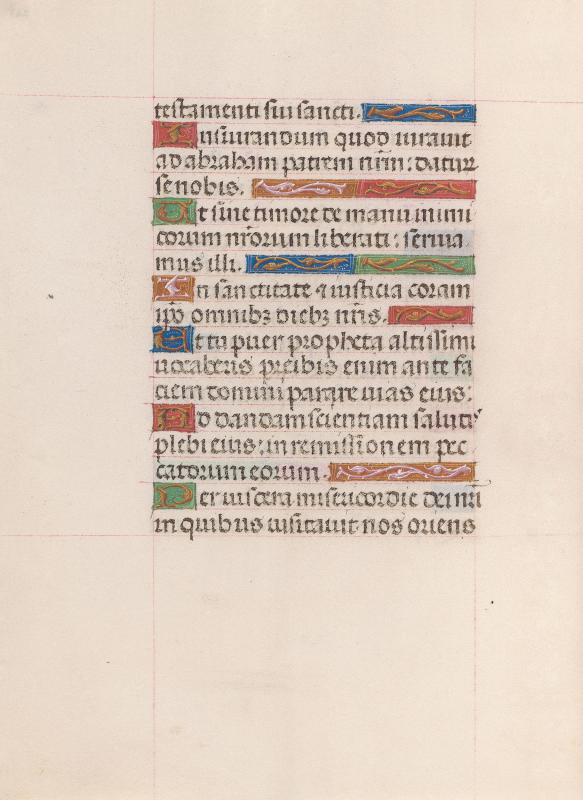 testamenti sui sancti.
Iusiurandum quod iurauit
ad abraham patrem nr̄m: daturū
se nobis.
Ut sine timore de manu inimi
corum nr̄orum liberati: seruia
mus illi.
In sanctitate ⁊ iusticia coram
ip̄o omnibꝫ diebꝫ nr̄is.
Et tu puer propheta altissimi
uocaberis: preibis enim ante fa
ciem domini parare uias eius:
Ad dandam scientiam salutis
plebi eius: in remissionem pec
catorum eorum.
Per uiscera misericordie dei nr̄i
in quibus uisitauit nos oriens